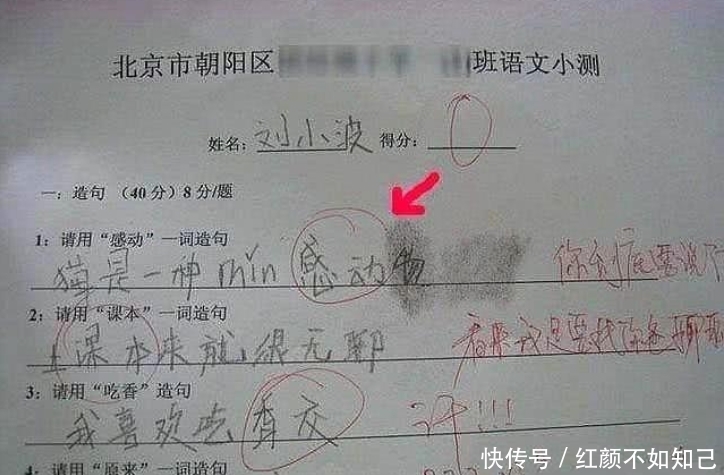 北京市朝阳区 班语文小测
姓名: 刘小波 得分: 0
一: 造句 （40分）8分/题
1: 请用“感动”一词造句
猫是一种mǐn感动物
你到底要说
2: 请用“课本”一词造句
上课本来就很无聊
看来我是要找你爸聊聊
3: 请用“吃香”造句
我喜欢吃香交
汗!!!
4: 请用“原来”一词造句
快传号／红颜不如知己